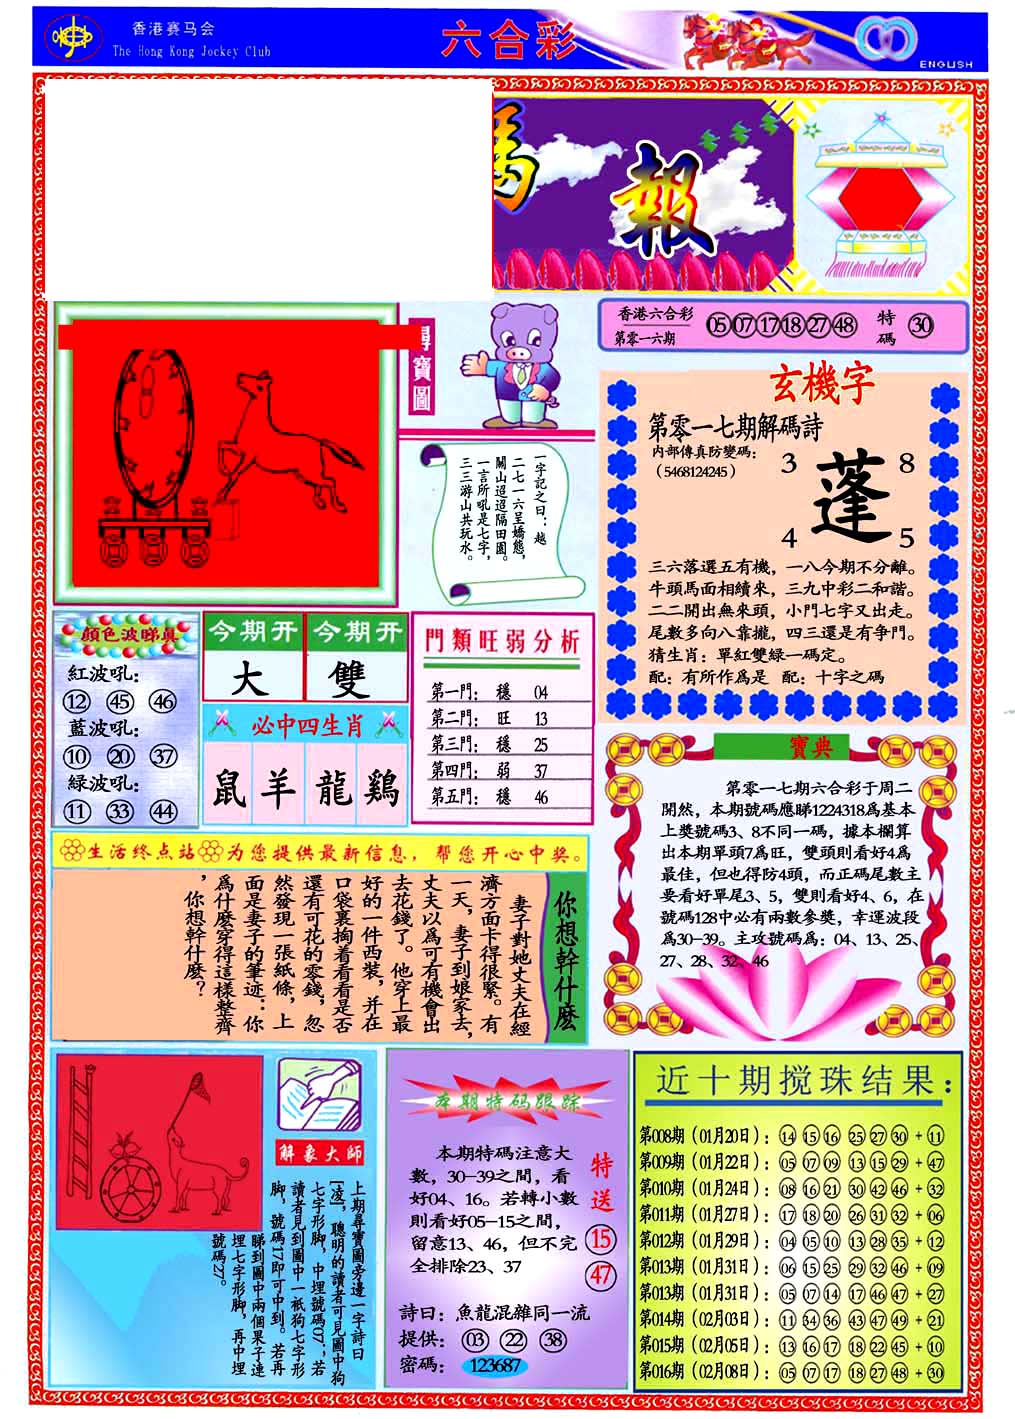 香港赛马会
The Hong Kong Jockey Club
六合彩
ENGLISH
馬報
尋寶圖
香港六合彩
第零一六期
05 07 17 18 27 48
特碼
30
一字記之曰：越
二七一六呈嬌態，
關山迢迢隔田園。
一言所吼是七字，
三三游山共玩水。
玄機字
第零一七期解碼詩
内部傳真防變碼：
（5468124245）
3 8
蓬
4 5
三六落選五有機，一八今期不分離。
牛頭馬面相續來，三九中彩二和諧。
二二開出無來頭，小門七字又出走。
尾數多向八靠攏，四三還是有争門。
猜生肖：單紅雙緑一碼定。
配：有所作爲是 配：十字之碼
顔色波睇真
紅波吼：
12 45 46
藍波吼：
10 20 37
緑波吼：
11 33 44
今期开 今期开
大 雙
必中四生肖
鼠 羊 龍 鷄
門類旺弱分析
第一門： 穩 04
第二門： 旺 13
第三門： 穩 25
第四門： 弱 37
第五門： 穩 46
寶典
第零一七期六合彩于周二
開然，本期號碼應睇1224318爲基本
上獎號碼3、8不同一碼，據本欄算
出本期單頭7爲旺，雙頭則看好4爲
最佳，但也得防4頭，而正碼尾數主
要看好單尾3、5，雙則看好4、6，在
號碼128中必有兩數參獎，幸運波段
爲30-39。主攻號碼爲：04、13、25、
27、28、32、46
生活终点站 为您提供最新信息，帮您开心中奖。
你想幹什麽
妻子對她丈夫在經
濟方面卡得很緊。有
一天，妻子到娘家去，
丈夫以爲可有機會出
去花錢了。他穿上最
好的一件西裝，并在
口袋裏掏着看看是否
還有可花的零錢，忽
然發現一張紙條，上
面是妻子的筆迹：你
爲什麽穿得這樣整齊
，你想幹什麽？
解象大師
上期尋寶圖旁邊一字詩曰
[凌]，聰明的讀者可見圖中狗
七字形脚，中埋號碼07；若
讀者見到圖中一衹狗七字形
脚，號碼17即可中到。若再
睇到圖中兩個果子連
埋七字形脚，再中埋
號碼27。
本期特码跟踪
本期特碼注意大
數，30-39之間，看
好04、16。若轉小數
則看好05-15之間，
留意13、46，但不完
全排除23、37
特送
15
47
詩曰：魚龍混雜同一流
提供：03 22 38
密碼：123687
近十期搅珠结果：
第008期（01月20日）：14 15 16 25 27 30 + 11
第009期（01月22日）：05 07 09 13 15 29 + 47
第010期（01月24日）：08 16 21 30 42 46 + 32
第011期（01月27日）：17 18 20 26 31 32 + 06
第012期（01月29日）：04 05 10 13 28 35 + 12
第013期（01月31日）：06 15 25 29 32 46 + 09
第013期（01月31日）：05 07 14 17 46 47 + 27
第014期（02月03日）：11 34 36 43 47 49 + 21
第015期（02月05日）：13 16 17 18 22 45 + 10
第016期（02月08日）：05 07 17 18 27 48 + 30